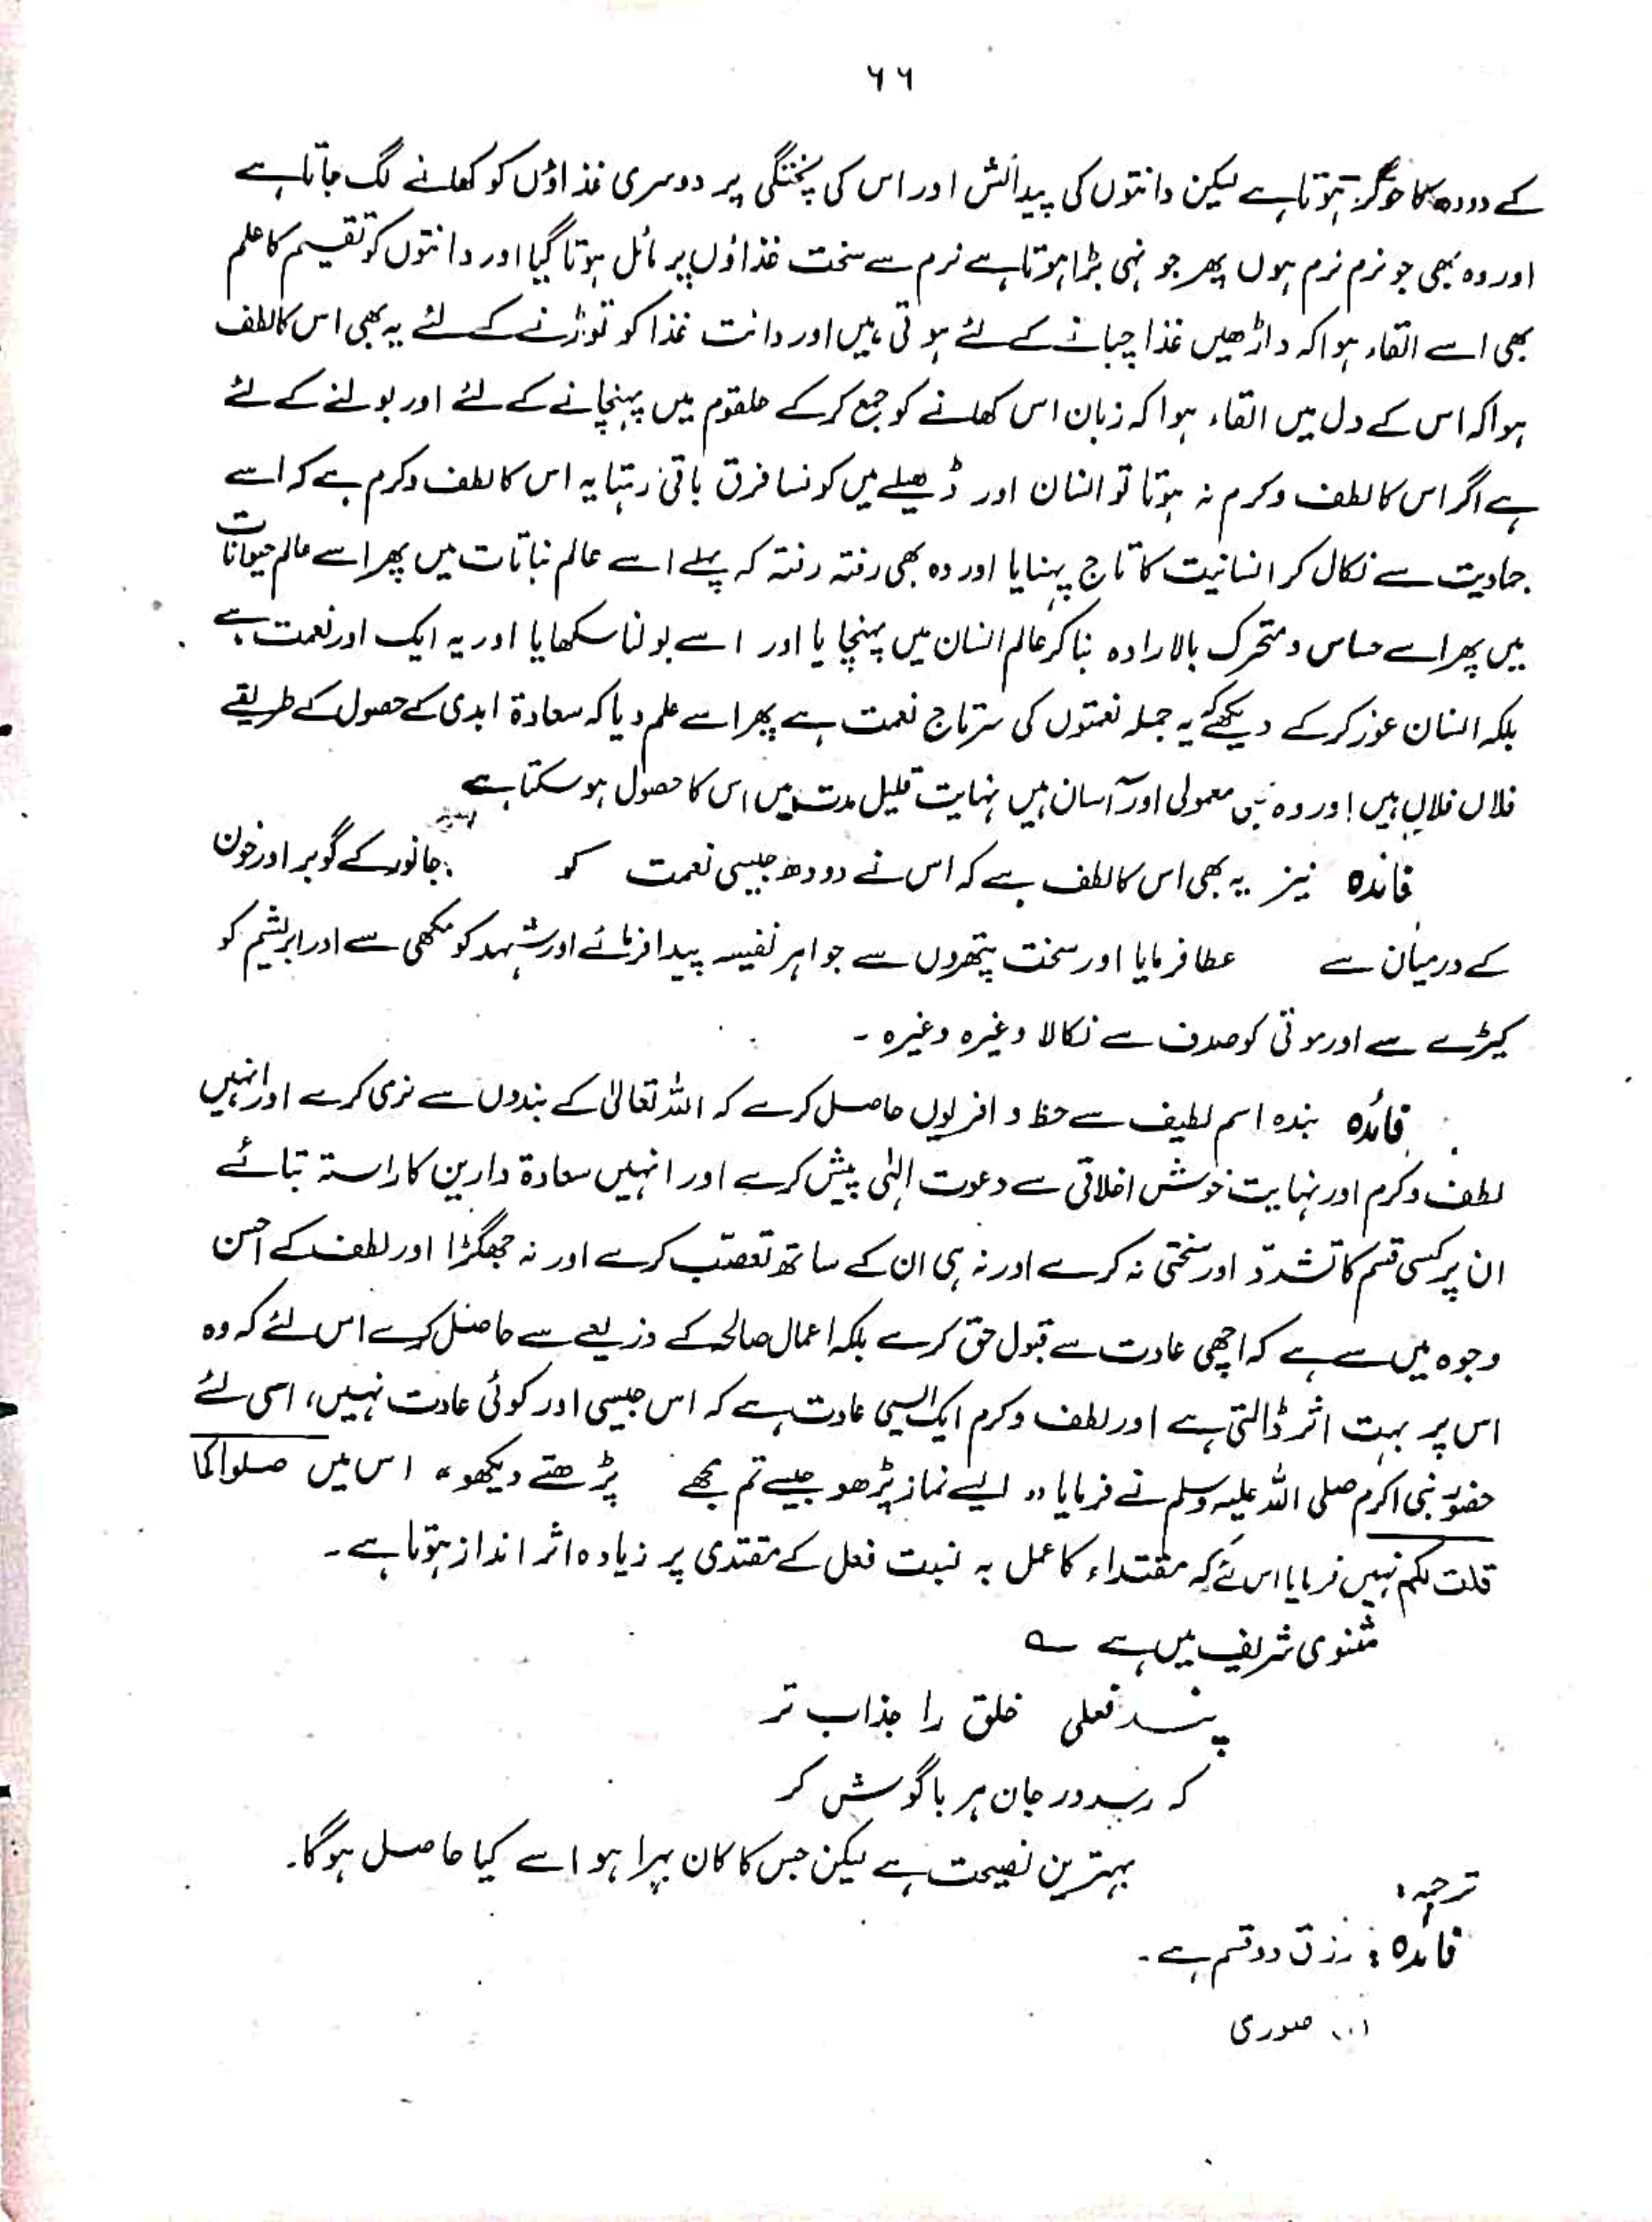 ٦٦
کے دودھ کا خوگر ہوتا ہے لیکن دانتوں کی پیدائش اور اس کی پختگی پر دوسری غذاؤں کو کھانے لگ جاتا ہے
اور وہ بھی جو نرم نرم ہوں پھر جونہی بڑا ہوتا ہے نرم سے سخت غذاؤں پر مائل ہوتا گیا اور دانتوں کو تقسیم کا علم
بھی اسے القاء ہوا کہ داڑھیں غذا چبانے کے لئے ہوتی ہیں اور دانت غذا کو توڑنے کے لئے یہ بھی اس کا لطف
ہوا کہ اس کے دل میں القاء ہوا کہ زبان اس کھانے کو جمع کر کے حلقوم میں پہنچانے کے لئے اور بولنے کے لئے
ہے اگر اس کا لطف و کرم نہ ہوتا تو انسان اور ڈھیلے میں کونسا فرق باقی رہتا یہ اس کا لطف و کرم ہے کہ اسے
جمادیت سے نکال کر انسانیت کا تاج پہنایا اور وہ بھی رفتہ رفتہ کہ پہلے اسے عالم نباتات میں پھر اسے عالم حیوانات
میں پھر اسے حساس و متحرک بالارادہ بنا کر عالم انسان میں پہنچایا اور اسے بولنا سکھایا اور یہ ایک اور نعمت ہے
بلکہ انسان غور کر کے دیکھے یہ جملہ نعمتوں کی سرتاج نعمت ہے پھر اسے علم دیا کہ سعادۃ ابدی کے حصول کے طریقے
فلاں فلاں ہیں اور وہ نہی معمولی اور آسان ہیں نہایت قلیل مدت میں اس کا حصول ہو سکتا ہے
فائدہ نیز یہ بھی اس کا لطف ہے کہ اس نے دودھ جیسی نعمت کو جانور کے گوبر اور خون
کے درمیان سے عطا فرمایا اور سخت پتھروں سے جواہر نفیسہ پیدا فرمائے اور شہد کو مکھی سے اور ابریشم کو
کیڑے سے اور موتی کو صدف سے نکالا وغیرہ وغیرہ ۔
فائدہ بندہ اسم لطیف سے حظ وافر یوں حاصل کرے کہ اللہ تعالیٰ کے بندوں سے نرمی کرے اور انہیں
لطف و کرم اور نہایت خوش اخلاقی سے دعوت الٰہی پیش کرے اور انہیں سعادۃ دارین کا راستہ بتائے
ان پر کسی قسم کا تشدّد اور سختی نہ کرے اور نہ ہی ان کے ساتھ تعصّب کرے اور نہ جھگڑا اور لطف کے احسن
وجوہ میں سے ہے کہ اچھی عادت سے قبول حق کرے بلکہ اعمال صالحہ کے ذریعے سے حاصل کرے اس لئے کہ وہ
اس پر بہت اثر ڈالتی ہے اور لطف و کرم ایک ایسی عادت ہے کہ اس جیسی اور کوئی عادت نہیں، اسی لئے
حضور نبی اکرم صلی اللہ علیہ وسلم نے فرمایا ،، ایسے نماز پڑھو جیسے تم مجھے پڑھتے دیکھو ،، اس میں صلوا کما
قلت لکم نہیں فرمایا اس لئے کہ مقتداء کا عمل بہ نسبت فعل کے مقتدی پر زیادہ اثر انداز ہوتا ہے ۔
مثنوی شریف میں ہے ؎
پند فعلی خلق را جذاب تر
کہ رسد در جان ہر باگوش کر
ترجمہ: بہترین نصیحت ہے لیکن جس کا کان بہرا ہو اسے کیا حاصل ہوگا۔
فائدہ : رزق دو قسم ہے ۔
(۱) صوری